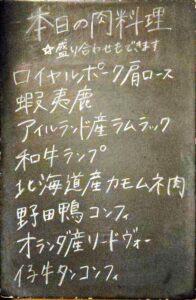 本日の肉料理
☆盛り合わせもできます
ロイヤルポーク肩ロース
蝦夷鹿
アイルランド産ラムラック
和牛ランプ
北海道産カモムネ肉
野田鴨コンフィ
オランダ産リードヴォー
仔牛タンコンフィ